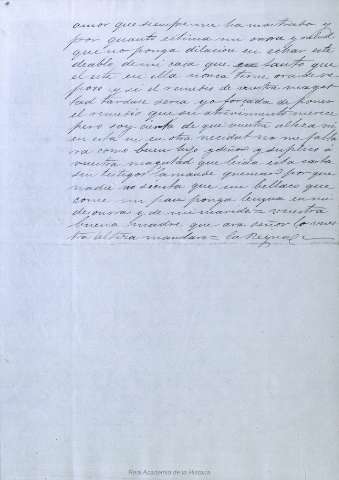 amor que siempre me ha mostrado y
por quanto estima mi onra y salud
que no ponga dilacion en echar este
diablo de mi casa que en tanto que
el esté en ella nunca tiene ora de re
poso y si el remedio de vuestra mages
tad tardase seria yo forzada de poner
el remedio que su atrevimiento merece
pero soy cierta de que vuestra alteza ni
en esto ni en otra necesidat no me falta
ra como buen hijo y dueños y suplico á
vuestra magestad que leida esta carta
sin testigos la mande quemar porque
nadie no sienta que un bellaco que
come mi pan ponga lengua en mi
desonra y de mi marido = vuestra
buena madre que ara señor lo vues
tra alteza mandare = la Reyna =
Real Academia de la Historia